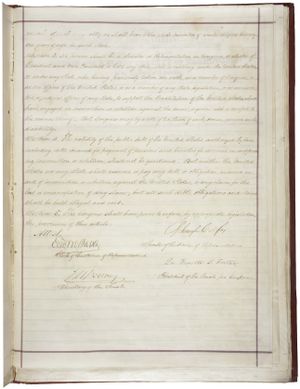 years of age in such State.
Section 3. No person shall be a Senator or Representative in Congress, or elector of
President and Vice President, or hold any office, civil or military, under the United States,
or under any State, who, having previously taken an oath, as a member of Congress, or
as an officer of the United States, or as a member of any State legislature, or as an executive
or judicial officer of any State, to support the Constitution of the United States, shall have
engaged in insurrection or rebellion against the same, or given aid or comfort to
the enemies thereof. But Congress may by a vote of two thirds of each House, remove such
disability.
Section 4. The validity of the public debt of the United States, authorized by law,
including debts incurred for payment of pensions and bounties for services in suppress
ing insurrection or rebellion, shall not be questioned. But neither the United
States nor any State shall assume or pay any debt or obligation incurred in
aid of insurrection or rebellion against the United States, or any claim for the
loss or emancipation of any slave; but all such debts, obligations and claims
shall be held illegal and void.
Section 5. The Congress shall have power to enforce, by appropriate legislation,
the provisions of this article.
Attest
Edwd McPherson
Clerk of the House of Representatives
Schuyler Colfax
Speaker of the House of Representatives
J W Forney
Secretary of the Senate
La Fayette S. Foster
President of the Senate pro tempore